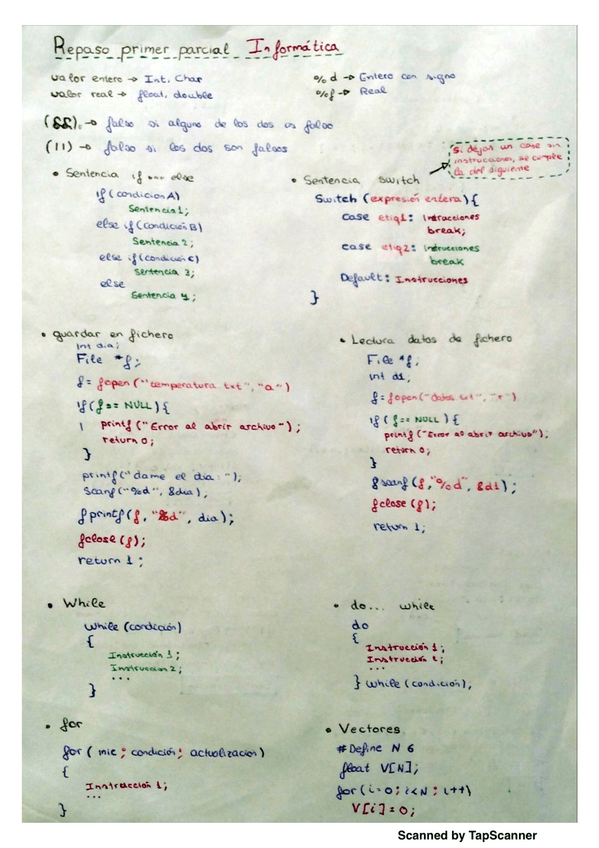 Repaso primer parcial Informática
valor entero → Int, Char
valor real → float, double
%d → Entero con signo
%f → Real
(&&) → falso si alguno de los dos es falso
(||) → falso si los dos son falsos
• Sentencia if ... else
if (condicion A)
Sentencia 1;
else if (condición B)
Sentencia 2;
else if (condición C)
Sentencia 3;
else
Sentencia 4;
• Sentencia switch
si dejas un case sin
instrucciones, se cumple
la del siguiente
Switch (expresión entera) {
case etiq1: Instrucciones
break;
case etiq2: Instrucciones
break
Default: Instrucciones
}
• guardar en fichero
int dia;
File *f;
f= fopen ("temperatura.txt", "a")
if (f == NULL) {
printf ("Error al abrir archivo");
return 0;
}
printf ("dame el dia: ");
Scanf ("%d", &dia);
fprintf (f, "%d", dia);
fclose (f);
return 1;
• Lectura datos de fichero
File *f;
int d1;
f= fopen ("datos.txt", "r")
if (f == NULL) {
printf ("Error al abrir archivo");
return 0;
}
fscanf (f, "%d", &d1);
fclose (f);
return 1;
• While
while (condición)
{
Instrucción 1;
Instruccion 2;
...
}
• do... while
do
{
Instrucción 1;
Instrucción 2;
...
} while (condición);
• for
for ( inic ; condición ; actualización )
{
Instrucción 1;
...
}
• Vectores
#Define N 6
float V[N];
for ( i=0 ; i<N ; i++)
V[i] = 0;
Scanned by TapScanner